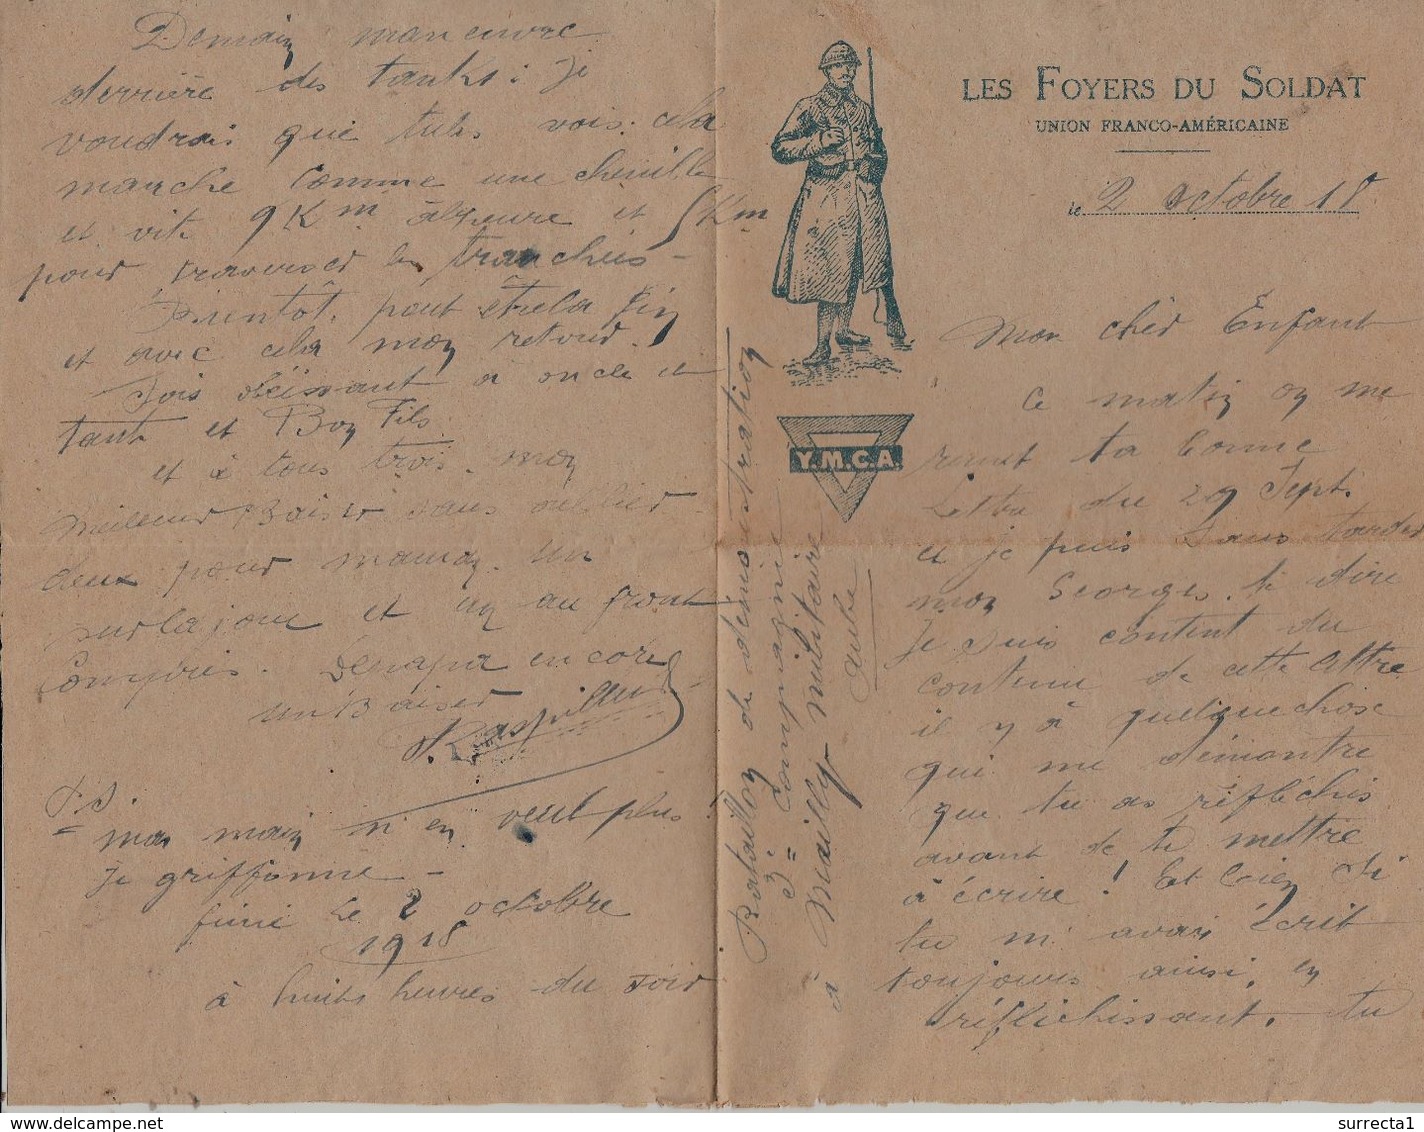 LES FOYERS DU SOLDAT
UNION FRANCO-AMÉRICAINE
le 2 octobre 18
Mon chèr Enfant
Ce matin on me
remet ta bonne
Lettre du 29 Sept.
et je puis sans tarder
mon Georges. te dire
Je suis content du
contenu de cette lettre
il y à quelque chose
qui me démontre
que tu as réfléchis
avant de te mettre
à écrire ! Et bien si
tu m'avais écrit
toujours ainsi, en
réfléchissant. tu
Y.M.C.A.
Bataillon de démonstration
3e Compagnie
à Mailly militaire
Aube
Demain manœuvre
derrière des tanks : je
voudrais que tu les vois. cela
marche comme une chenille
et vite 9 Km à l'heure et 5 Km
pour traverser les tranchées -
Bientôt, peut être la fin
et avec cela mon retour.
Sois obéissant a oncle et
tante et Bon Fils
et à tous trois. mon
meilleur Baiser sans oublier
deux pour maman. un
sur la joue et un au front
Compris. De papa encore
un Baiser
P.S.
ma main n'en veut plus !
Je griffonne -
fini le 2 octobre
1918
à huits heures du soir
www.delcampe.net
surrecta1